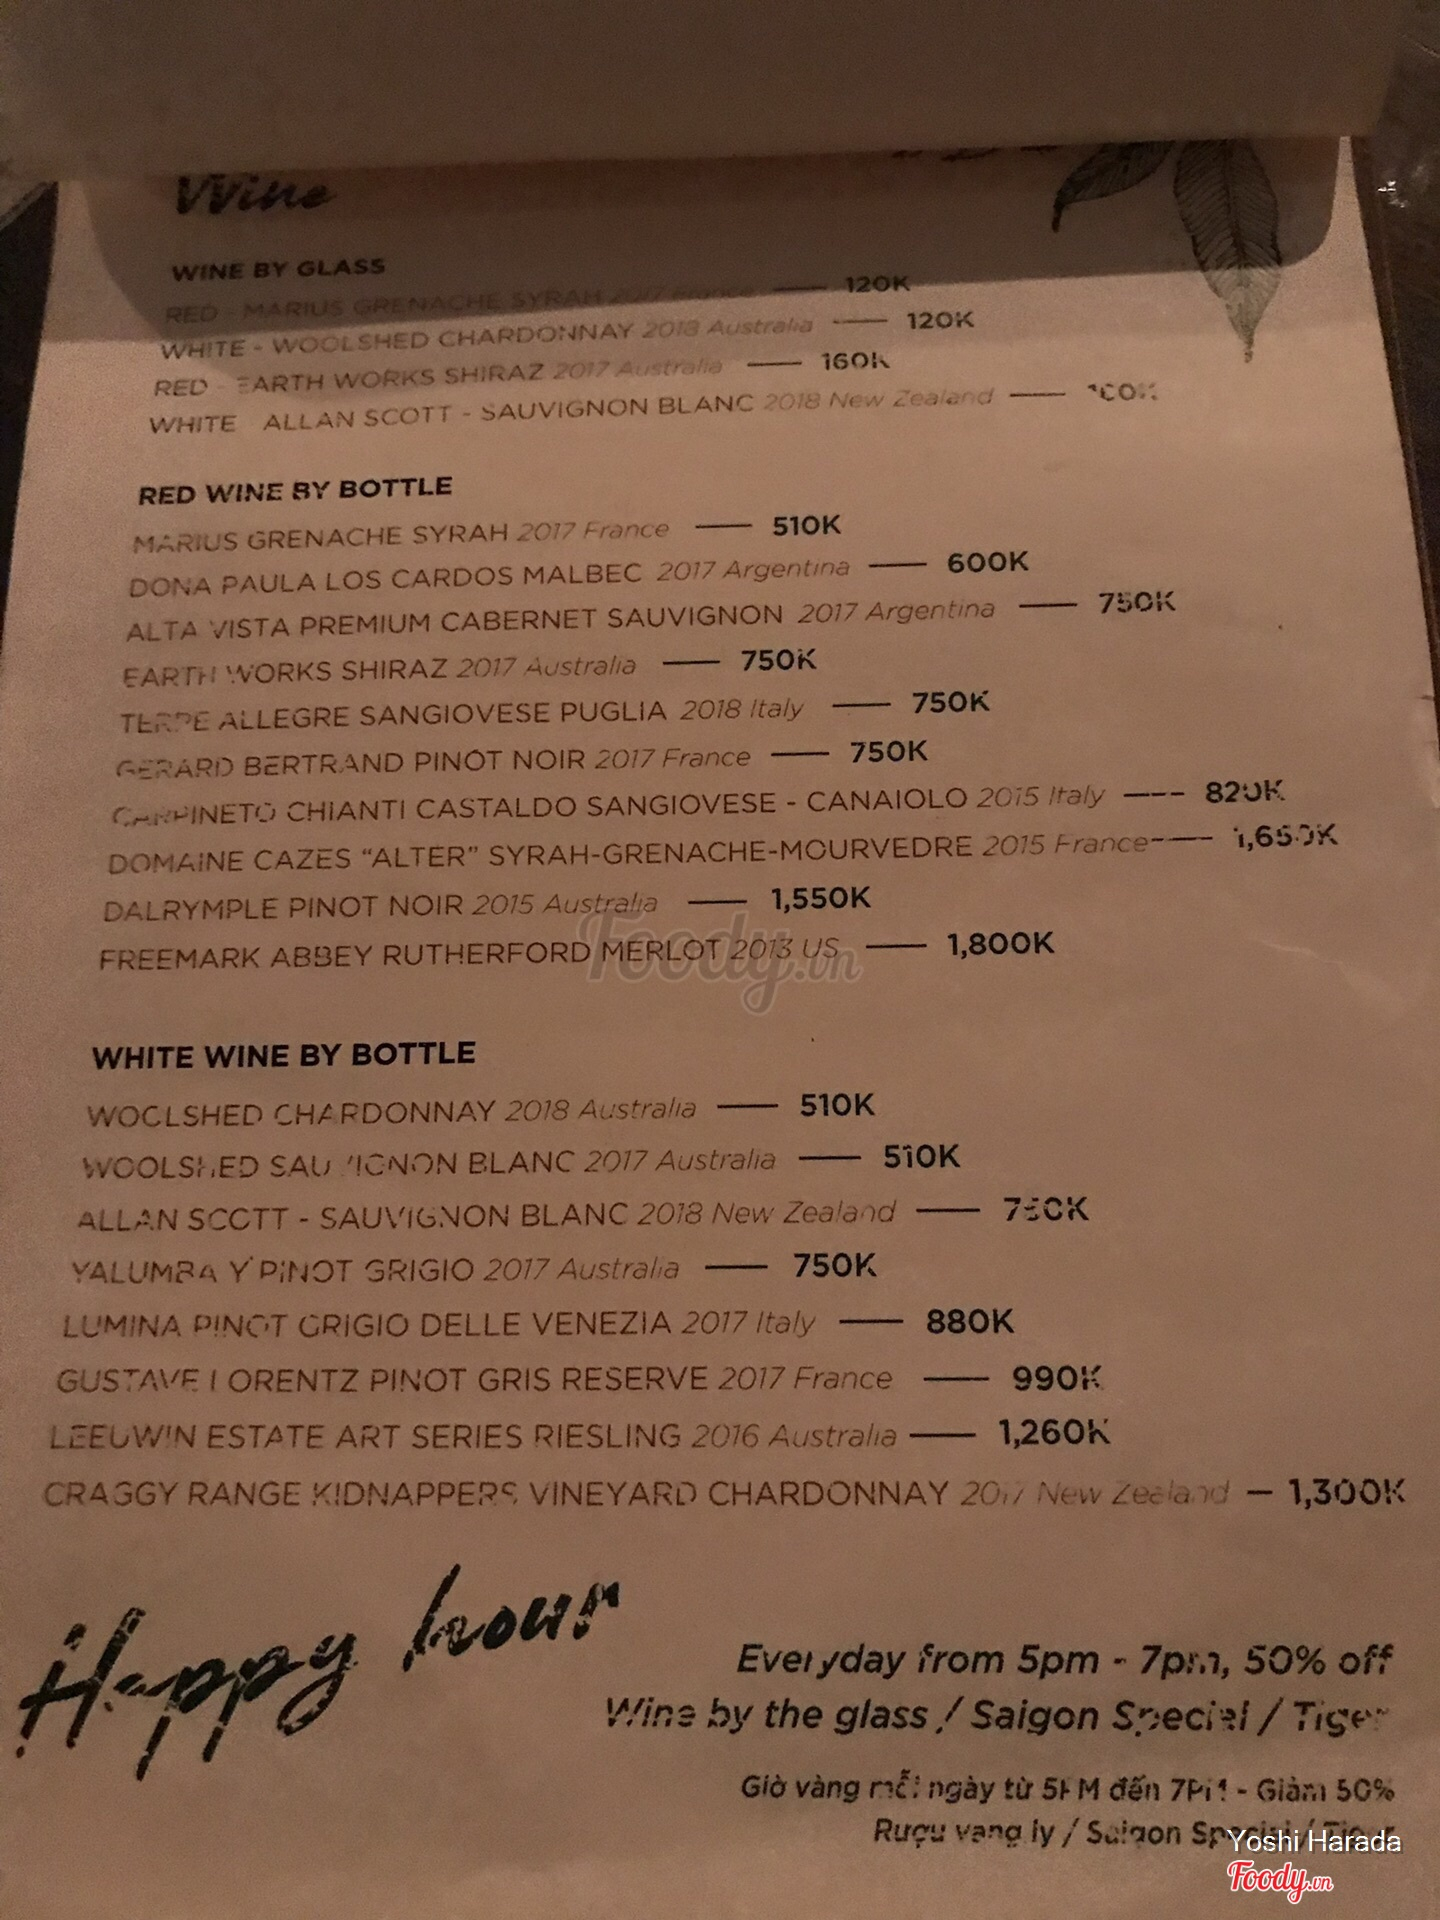 Wine
WINE BY GLASS
RED - MARIUS GRENACHE SYRAH 2017 France 120K
WHITE - WOOLSHED CHARDONNAY 2018 Australia 120K
RED - EARTH WORKS SHIRAZ 2017 Australia 160K
WHITE ALLAN SCOTT - SAUVIGNON BLANC 2018 New Zealand
RED WINE BY BOTTLE
MARIUS GRENACHE SYRAH 2017 France 510K
DONA PAULA LOS CARDOS MALBEC 2017 Argentina 600K
ALTA VISTA PREMIUM CABERNET SAUVIGNON 2017 Argentina 750K
EARTH WORKS SHIRAZ 2017 Australia 750K
TERRE ALLEGRE SANGIOVESE PUGLIA 2018 Italy 750K
GERARD BERTRAND PINOT NOIR 2017 France 750K
CARPINETO CHIANTI CASTALDO SANGIOVESE - CANAIOLO 2015 Italy 820K
DOMAINE CAZES “ALTER” SYRAH-GRENACHE-MOURVEDRE 2015 France 1,650K
DALRYMPLE PINOT NOIR 2015 Australia 1,550K
FREEMARK ABBEY RUTHERFORD MERLOT 2013 US 1,800K
Foody.vn
WHITE WINE BY BOTTLE
WOOLSHED CHARDONNAY 2018 Australia 510K
WOOLSHED SAUVIGNON BLANC 2017 Australia 510K
ALLAN SCOTT - SAUVIGNON BLANC 2018 New Zealand 750K
YALUMBA Y PINOT GRIGIO 2017 Australia 750K
LUMINA PINOT GRIGIO DELLE VENEZIA 2017 Italy 880K
GUSTAVE LORENTZ PINOT GRIS RESERVE 2017 France 990K
LEEUWIN ESTATE ART SERIES RIESLING 2016 Australia 1,260K
CRAGGY RANGE KIDNAPPERS VINEYARD CHARDONNAY 2017 New Zealand 1,300K
Happy hour
Everyday from 5pm - 7pm, 50% off
Wine by the glass / Saigon Special / Tiger
Giờ vàng mỗi ngày từ 5PM đến 7PM - Giảm 50%
Rượu vang ly / Saigon Special / Tiger
Yoshi Harada
Foody.vn